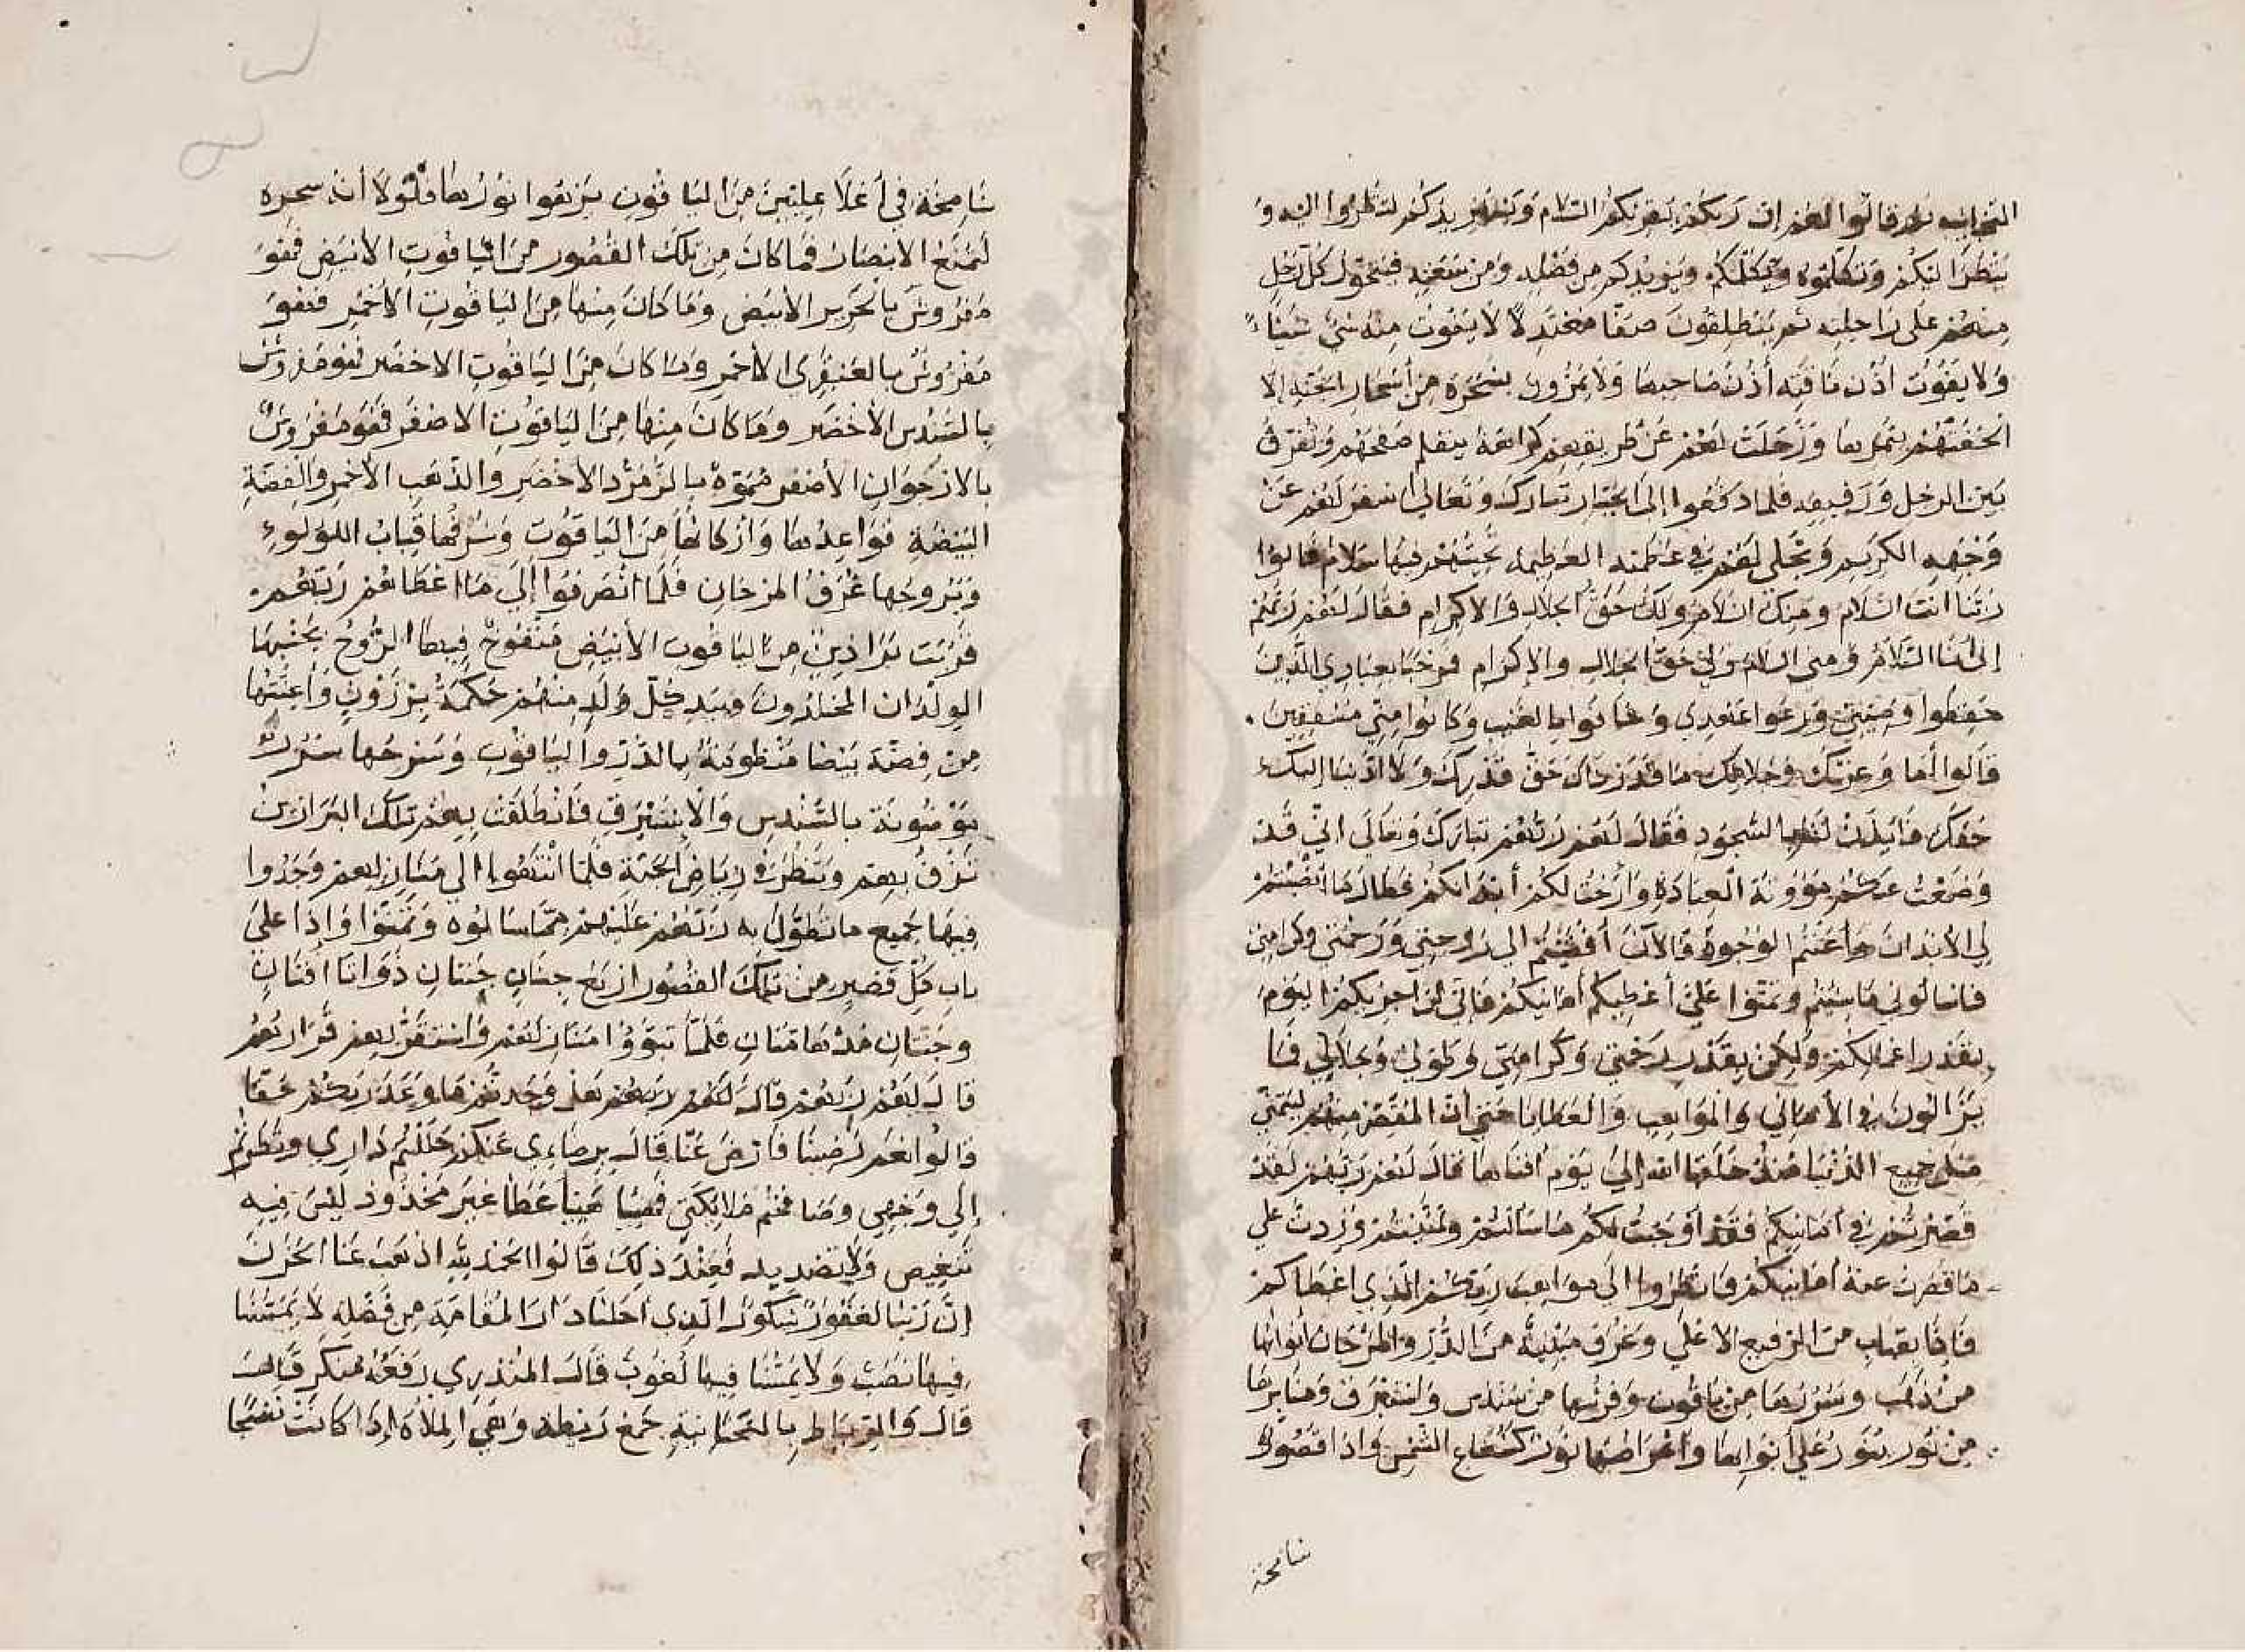 النجايب ثم قالوا لهم ان ربكم يقريكم السلام ويستزيركم لتنظروا اليه و
ينظر اليكم وتكلموه ويكلمكم ويزيدكم من فضله ومن سعته فيتحول كل رجل
منهم على راحلته ثم ينطلقون صفا معتدلا لا يفوت منه شي شيئا
ولا يفوت اذن ناقة أذن صاحبها ولا يمرون بشجرة من أشجار الجنة الا
اتحفتهم بثمرها وزحلت لهم عن طريقهم كراهة ينثلم صفهم وتفرق
بين الرجل ورفيقه فلما دفعوا إلى الجبار تبارك وتعالى أسفر لهم عن
وجهه الكريم وتجلى لهم في عظمته العظيمة تحيتهم فيها سلام قالوا
ربنا انت السلام ومنك السلام ولك حق الجلال والاكرام فقال لهم ربهم
إني أنا السلام ومني السلام ولي حق الجلال والإكرام فمرحبا بعبادي الذين
حفظوا وصيتي ورعوا عهدي وخافوني بالغيب وكانوا مني مشفقين
قالوا أما وعزتك وجلالك ما قدرناك حق قدرك ولا ادينا إليك
حقك فائذن لنا بالسجود فقال لهم ربهم تبارك وتعالى اني قد
وضعت عنكم مؤونة العبادة وأرحت لكم أبدانكم فطال ما أنصبتم
لي الأبدان وأعنتم الوجوه فالآن أفضيتم الى روحي ورحمتي وكرامتي
فاسألوني ما شئتم وتمنوا علي أعطيكم أمانيكم فاني لن اجزيكم اليوم
بقدر اعمالكم ولكن بقدر رحمتي وكرامتي وطولي وجلالي فما
يزالون في الأماني والمواهب والعطايا حتى أن المقصر منهم ليتمنى
مثل جميع الدنيا منذ خلقها الله إلى يوم أفناها فقال لهم ربهم لقد
قصرتم في أمانيكم فقد أوجبت لكم ما سألتم وتمنيتم وزدت على
ما قصرت عنه أمانيكم فانظروا الى مواهب ربكم الذي اعطاكم
فاذا بقباب من الرفيع الاعلى وغرف مبنية من الدر والمرجان أبوابها
من ذهب وسررها من ياقوت وفرشها من سندس واستبرق ومنابرها
من نور يفور على أبوابها وأعراضها نور كشعاع الشمس واذا قصور
شامخة
شامخة في أعلا عليين من الياقوت يزهوا نورها فلولا أنه سخره
لتمنع الابصار فما كان من تلك القصور من الياقوت الأبيض فهو
مفروش بالحرير الأبيض وما كان منها من الياقوت الأحمر فهو
مفروش بالعبقري الأحمر وما كان من الياقوت الاخضر فهو مفروش
بالسندس الأخضر وما كان منها من الياقوت الاصفر فهو مفروش
بالارجوان الأصفر مموه بالزمرد الأخضر والذهب الأحمر والفضة
البيضة قواعدها وأركانها من الياقوت وشرفها قباب اللؤلؤ
وبروجها غرف المرجان فلما انصرفوا إلى ما اعطاهم ربهم
قربت براذين من الياقوت الأبيض منفوخ فيها الروح يجنبها
الولدان المخلدون وبيد كل وليد منهم حكمة برذون وأعنتها
من فضة بيضا منظومة بالدر والياقوت وسرجها سرر
موضونة بالسندس والاستبرق فانطلقت بهم تلك البراذين
تزف بهم وتنظر في رياض الجنة فلما انتهوا الى منازلهم وجدوا
فيها جميع ما تطول به ربهم عليهم مما سالوه وتمنوا واذا على
باب كل قصر من تلك القصور أربع جنان جنتان ذواتا افنان
وجنتان مدهامتان فلما تبوؤا منازلهم واستقر بهم قرارهم
قال لهم ربهم هل وجدتم ما وعد ربكم حقا
قالوا نعم رضينا فارض عنا قال برضاءي عنكم حللتم داري ونظرتم
إلى وجهي وصافحتم ملايكتي فهنيا هنيا عطا غير مجذوذ ليس فيه
تنغيص ولا تصريد فعند ذلك قالوا الحمد لله اذهب عنا الحزن
إن ربنا لغفور شكور الذي أحلنا دار المقامة من فضله لا يمسنا
فيها نصب ولا يمسنا فيها لغوب قال المنذري رفعه منكر قال
قال والرياط بالتحتانية جمع ريطة وهي الملاة إذا كانت نسجا